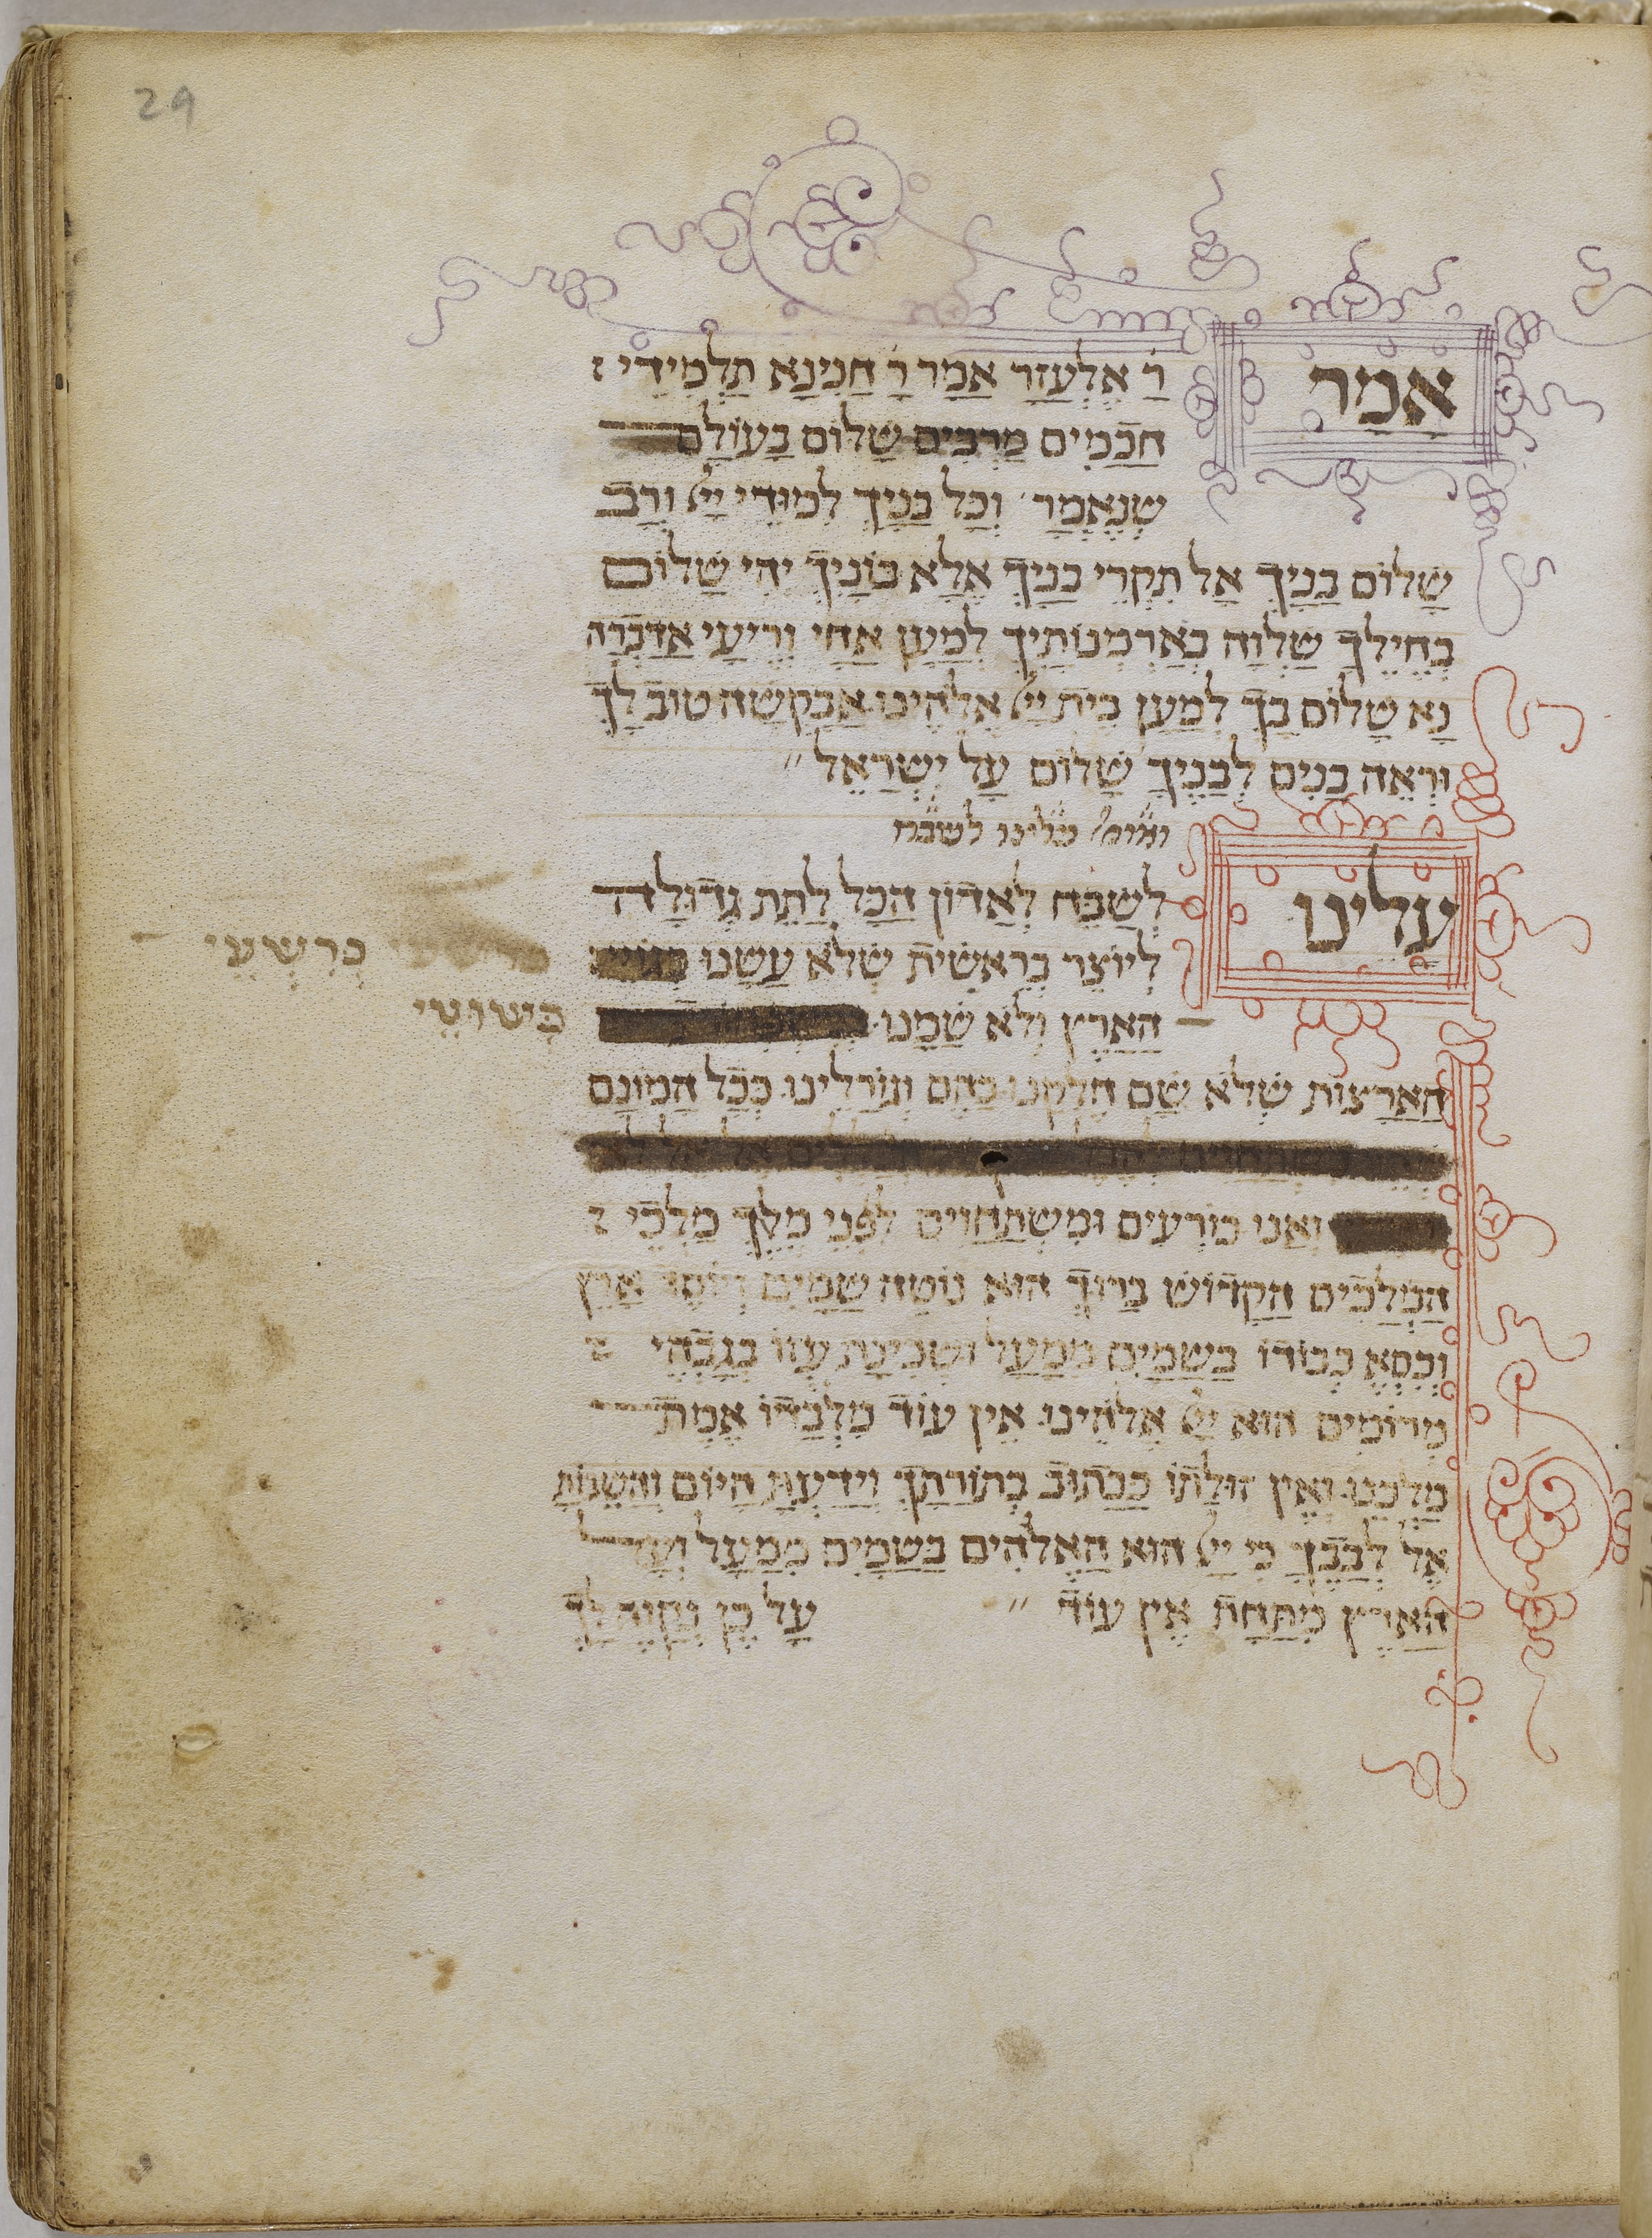 29
אָמַר
רַ׳ אֶלְעָזָר אָמַר רַ׳ חֲנִינָא תַלְמִידֵי
חֲכָמִים מַרְבִּים שָׁלוֹם בָּעוֹלָם
שֶׁנֶּאֱמַר׳ וְכָל בָּנַיִךְ לִמּוּדֵי יְיָ וְרַב
שְׁלוֹם בָּנַיִךְ אַל תִּקְרֵי בָּנַיִךְ אֶלָּא בּוֹנָיִךְ יְהִי שָׁלוֹם
בְּחֵילֵךְ שַׁלְוָה בְּאַרְמְנוֹתָיִךְ לְמַעַן אַחַי וְרֵיעָי אֲדַבְּרָה
נָא שָׁלוֹם בָּךְ לְמַעַן בֵּית יְיָ אֱלֹהֵינוּ אֲבַקְשָׁה טוֹב לָךְ
וּרְאֵה בָנִים לְבָנֶיךָ שָׁלוֹם עַל יִשְׂרָאֵל״
עלינו לשבח
עָלֵינוּ
לְשַׁבֵּחַ לַאֲדוֹן הַכֹּל לָתֵת גְּדוּלָּה
לְיוֹצֵר בְּרֵאשִׁית שֶׁלֹּא עָשָׂנוּ
כְּרִשְׁעֵי
הָאָרֶץ וְלֹא שָׂמָנוּ
הָאֲרָצוֹת שֶׁלֹּא שָׂם חֶלְקֵנוּ כָּהֶם וְגוֹרָלֵינוּ כְּכָל הֲמוֹנָם
וְאָנוּ כּוֹרְעִים וּמִשְׁתַּחֲוִים לִפְנֵי מֶלֶךְ מַלְכֵי
הַמְּלָכִים הַקָּדוֹשׁ בָּרוּךְ הוּא נוֹטֶה שָׁמַיִם וְיוֹסֵד אָרֶץ
וְכִסֵּא כְבוֹדוֹ בַּשָּׁמַיִם מִמַּעַל וּשְׁכִינַת עֻזּוֹ בְּגָבְהֵי
מְרוֹמִים הוּא יְיָ אֱלֹהֵינוּ אֵין עוֹד מִלְבַדּוֹ אֱמֶת
מַלְכֵּנוּ וְאֵין זוּלָתוֹ כַּכָּתוּב בְּתוֹרָתָךְ וְיָדַעְתָּ הַיּוֹם וַהֲשֵׁבוֹתָ
אֶל לְבָבֶךָ כִּי יְיָ הוּא הָאֱלֹהִים בַּשָּׁמַיִם מִמַּעַל וְעַל
הָאָרֶץ מִתַּחַת אֵין עוֹד ״ עַל כֵּן נְקַוֶּה לְךָ